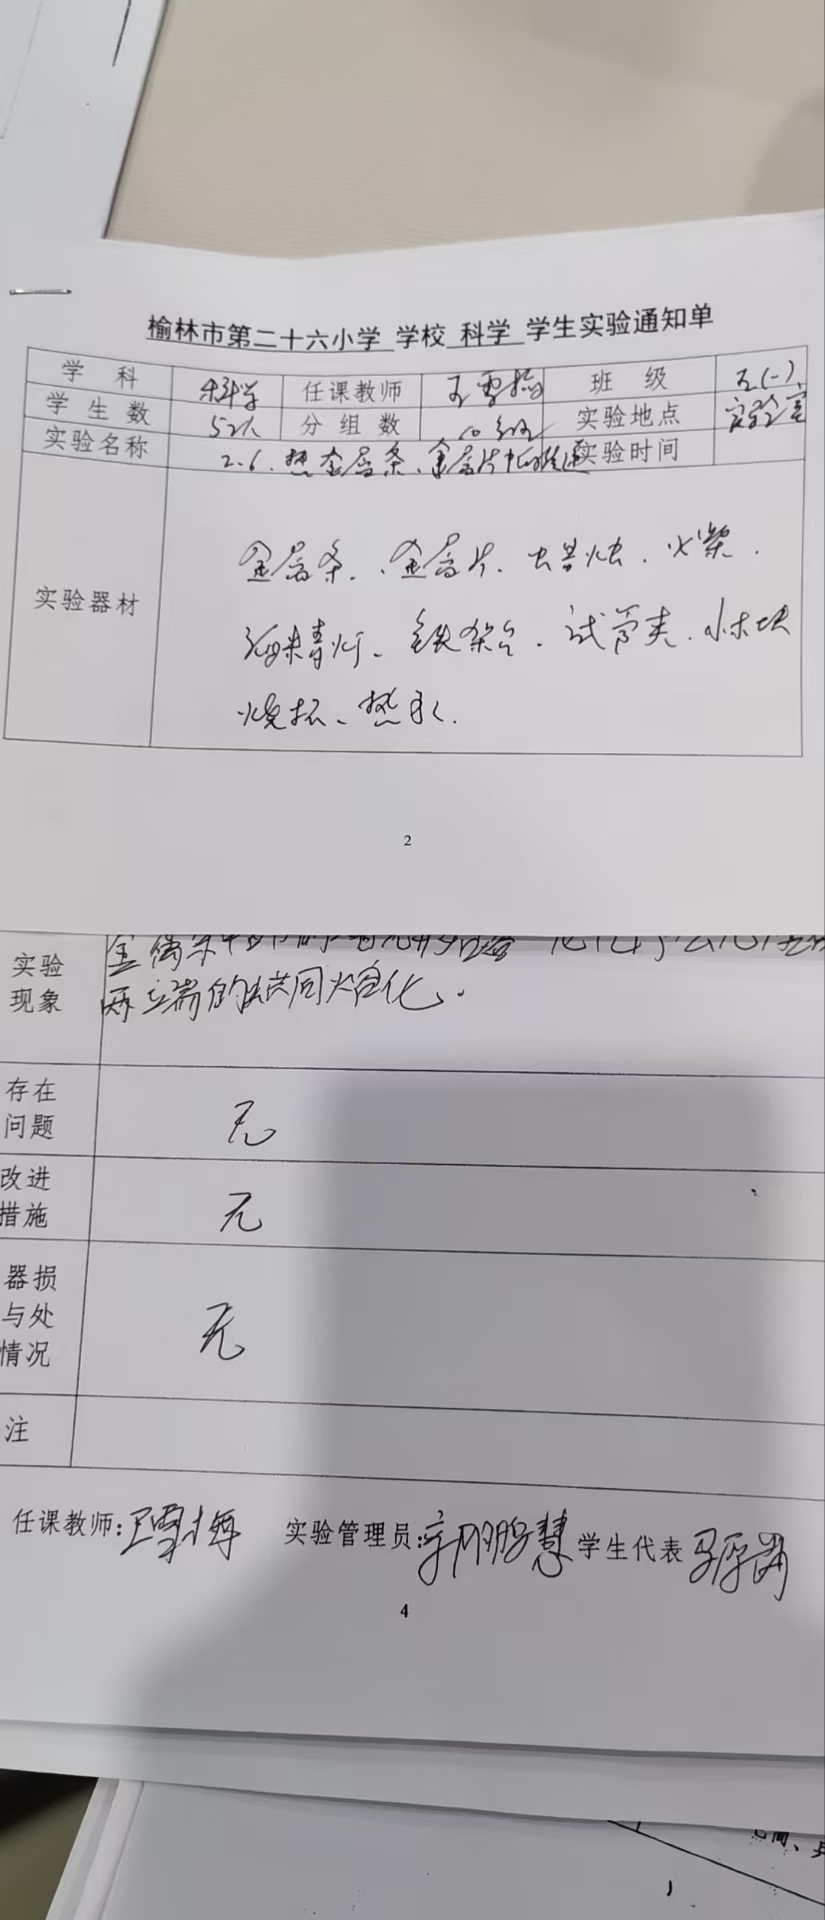 榆林市第二十六小学 学校 科学 学生实验通知单
学科 科学 任课教师 王雪梅 班级 五(一)
学生数 52人 分组数 10组 实验地点 实验室
实验名称 2.6.热金属条、金属片中的传递 实验时间
实验器材
金属条、金属片、蜡烛、火柴、
酒精灯、铁架台、试管夹、小木块
烧杯、热水.
2
实验现象
两端的蜡同熔化。
存在问题 无
改进措施 无
器损
与处
情况 无
注
任课教师:王雪梅 实验管理员: 学生代表
4